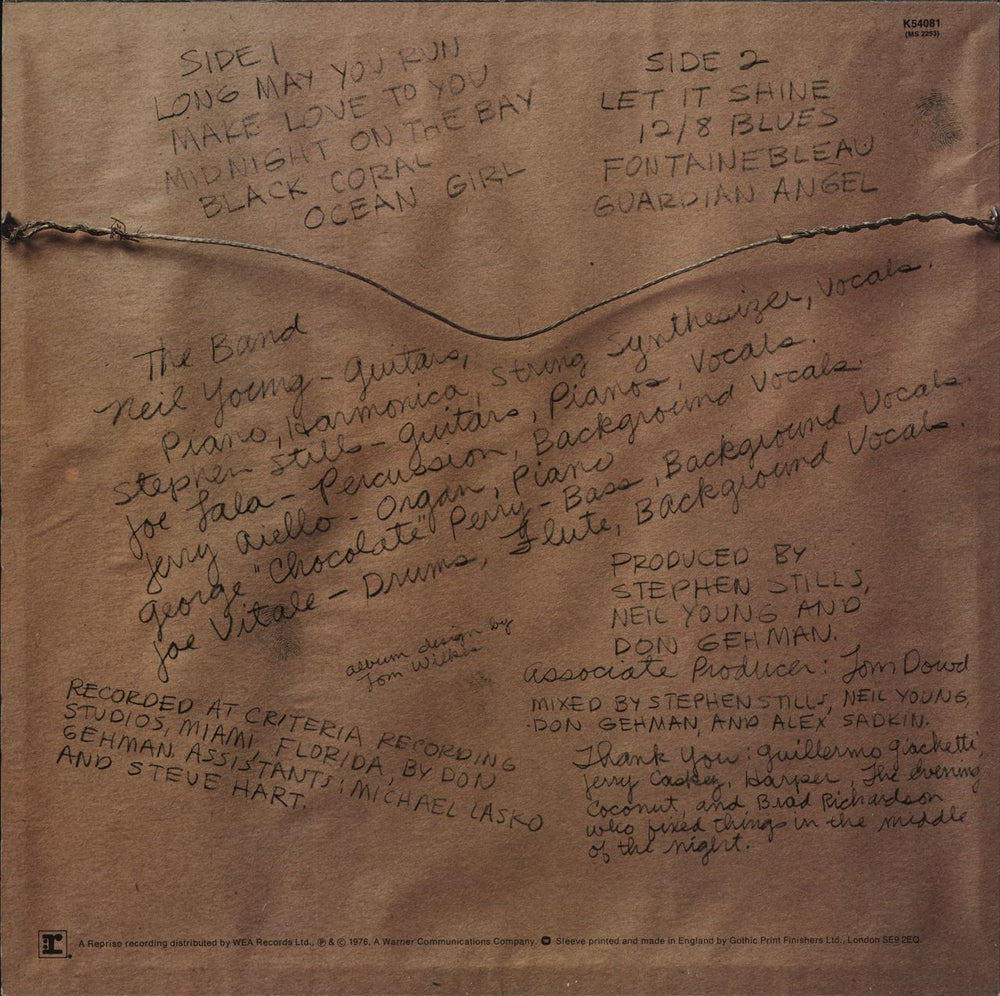 K54081
(MS 2253)
SIDE 1
LONG MAY YOU RUN
MAKE LOVE TO YOU
MIDNIGHT ON THE BAY
BLACK CORAL
OCEAN GIRL
SIDE 2
LET IT SHINE
12/8 BLUES
FONTAINEBLEAU
GUARDIAN ANGEL
The Band
Neil Young - Guitars,
Piano, Harmonica, String Synthesizer, vocals.
Stephen Stills - Guitars, Pianos, Vocals.
Joe Lala - Percussion, Background Vocals.
Jerry Aiello - Organ, Piano
George "Chocolate" Perry - Bass, Background Vocals.
Joe Vitale - Drums, Flute, Background Vocals.
album design by
Tom Wilkes
PRODUCED BY
STEPHEN STILLS,
NEIL YOUNG AND
DON GEHMAN.
Associate Producer: Tom Dowd
MIXED BY STEPHEN STILLS, NEIL YOUNG,
DON GEHMAN, AND ALEX SADKIN.
RECORDED AT CRITERIA RECORDING
STUDIOS, MIAMI FLORIDA, BY DON
GEHMAN. ASSISTANTS: MICHAEL LASKO
AND STEVE HART.
Thank You: Guillermo Giachetti,
Jerry Caskey, Harper, The evening
Coconut, and Brad Richardson
who fixed things in the middle
of the night.
r
A Reprise recording distributed by WEA Records Ltd., ℗ & © 1976, A Warner Communications Company. Sleeve printed and made in England by Gothic Print Finishers Ltd., London SE9 2EQ.